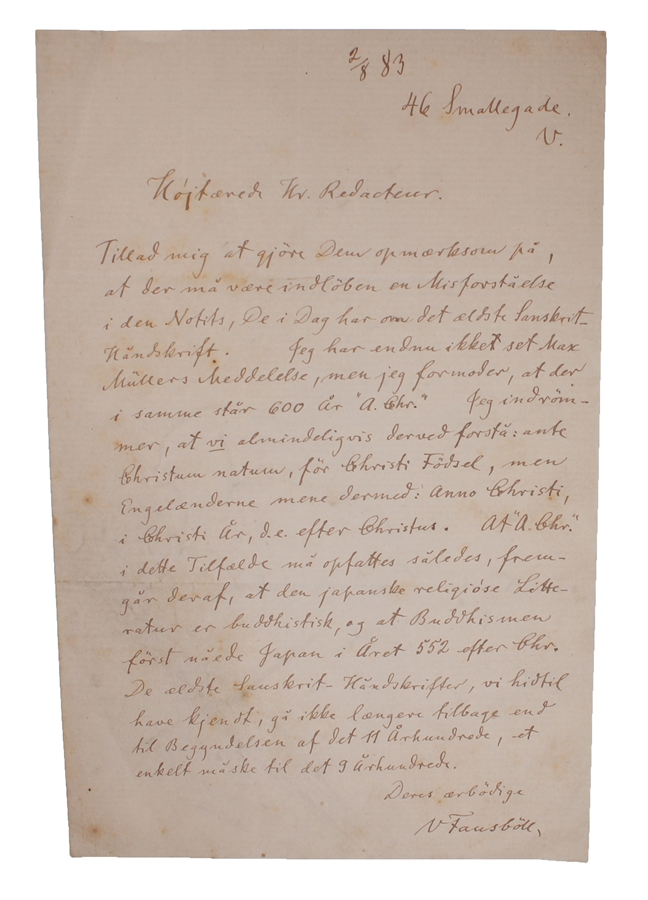 2/8 83
46 Smallegade.
V.
Højtærede Hr. Redacteur.
Tillad mig at gjöre Dem opmærksom på,
at der må være indlöben en Misforståelse
i den Notits, De i Dag har om det ældste Sanskrit-
Håndskrift. Jeg har endnu ikke set Max
Müllers Meddelelse, men jeg formoder, at der
i samme står 600 År "A. Chr." Jeg indröm-
mer, at vi almindeligvis derved forstå: ante
Christum natum, för Christi Födsel, men
Engelænderne mene dermed: Anno Christi,
i Christi År, d.e. efter Christus. At "A. Chr."
i dette Tilfælde må opfattes således, frem-
går deraf, at den japanske religiöse Litte-
ratur er buddhistisk, og at Buddhismen
först nåede Japan i Året 552 efter Chr.
De ældste Sanskrit-Håndskrifter, vi hidtil
have kjendt, gå ikke længere tilbage end
til Begyndelsen af det 11 Århundrede, et
enkelt måske til det 9 Århundrede.
Deres ærbödige
V Fausböll.